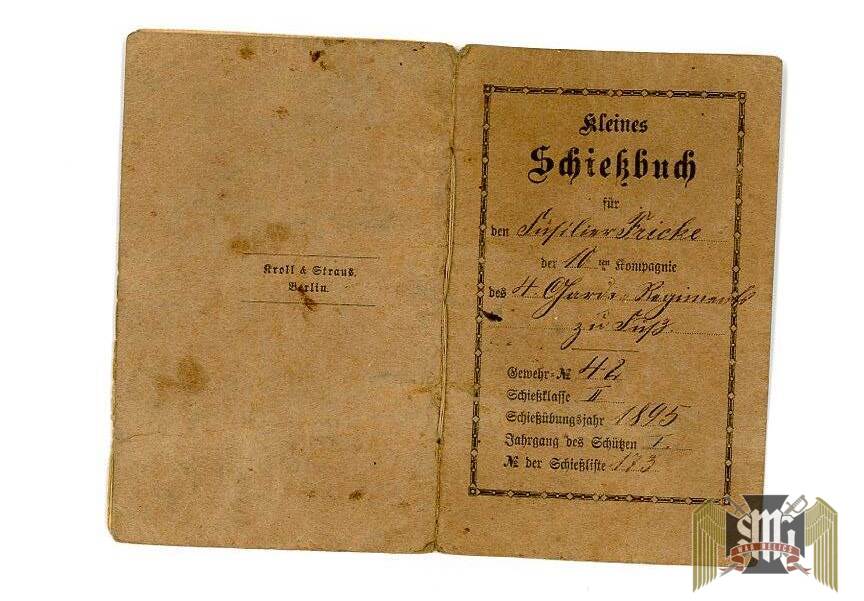 Kroll & Straus,
Berlin.
Kleines
Schießbuch
für
den Füsilier Fricke
der 10ten Kompagnie
des 4. Garde-Regiments
zu Fuß.
Gewehr-№ 42
Schießklasse II
Schießübungsjahr 1895
Jahrgang des Schützen 1.
№ der Schießliste 173
SMG
WAR RELICS